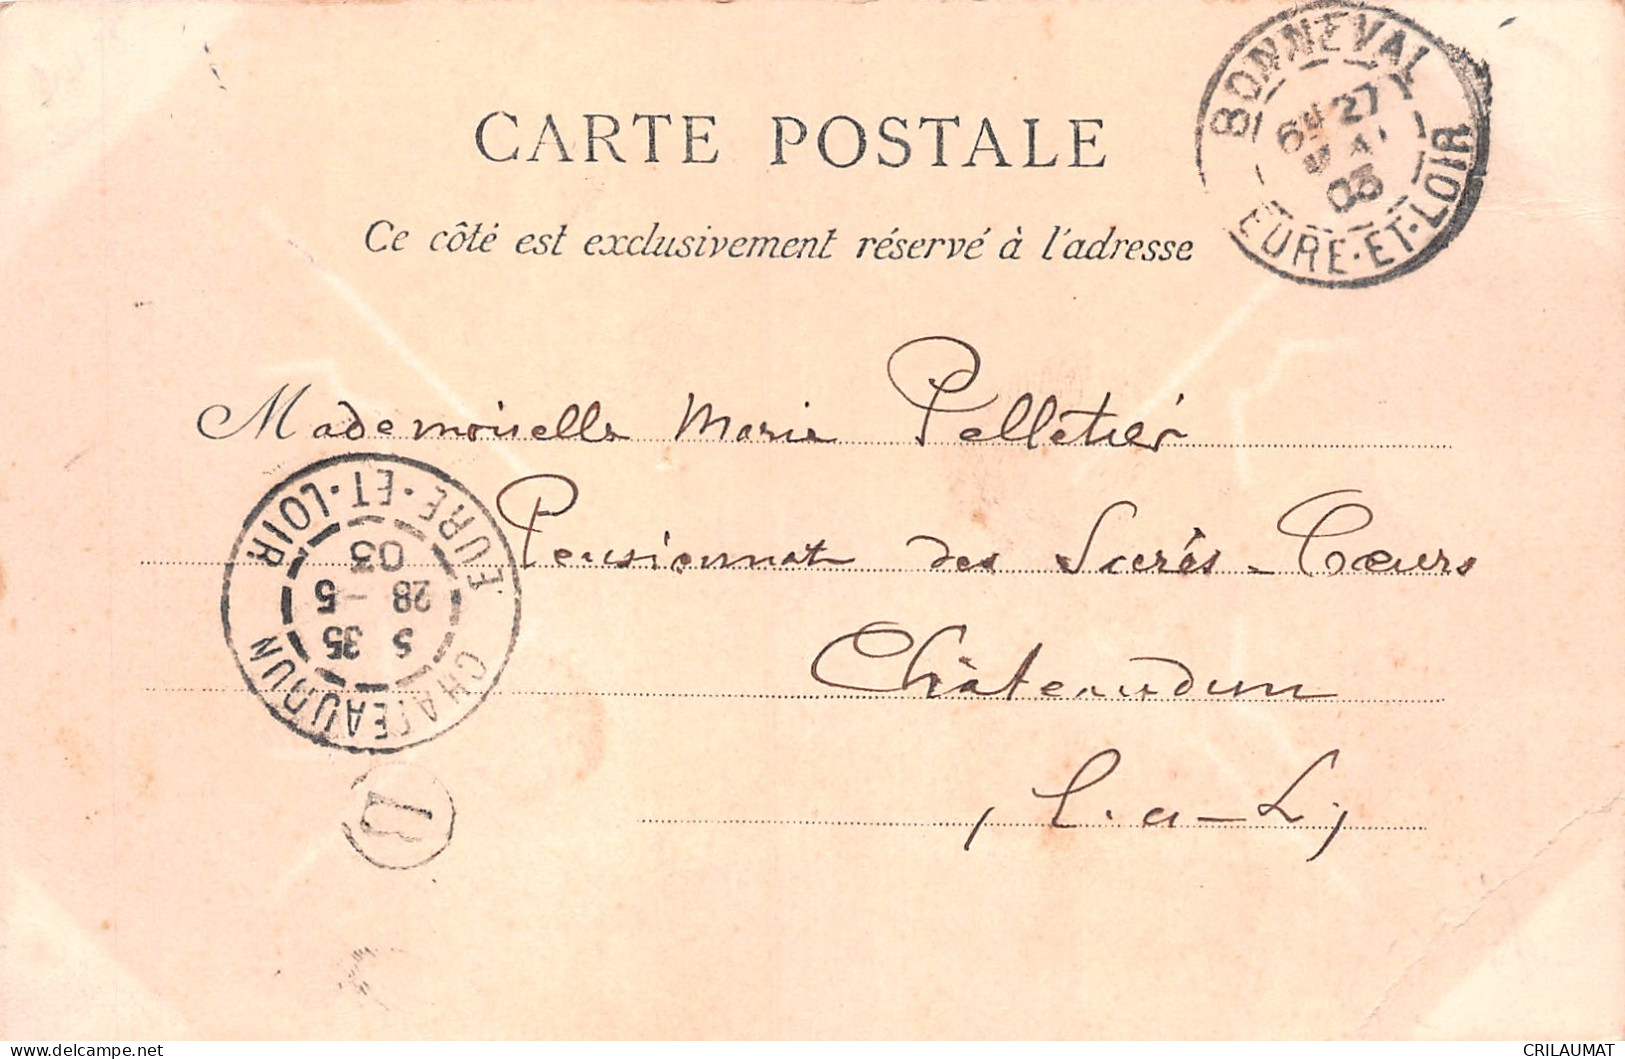 CARTE POSTALE
Ce côté est exclusivement réservé à l'adresse
BONNEVAL
27
03
EURE-ET-LOIR
Mademoiselle Marie Pelletier
Pensionnat des Sacrés-Cœurs
Châteaudun
(E.-et-L)
CHATEAUDUN
5 35
28 - 5
03
EURE-ET-LOIR
CRILAUMAT